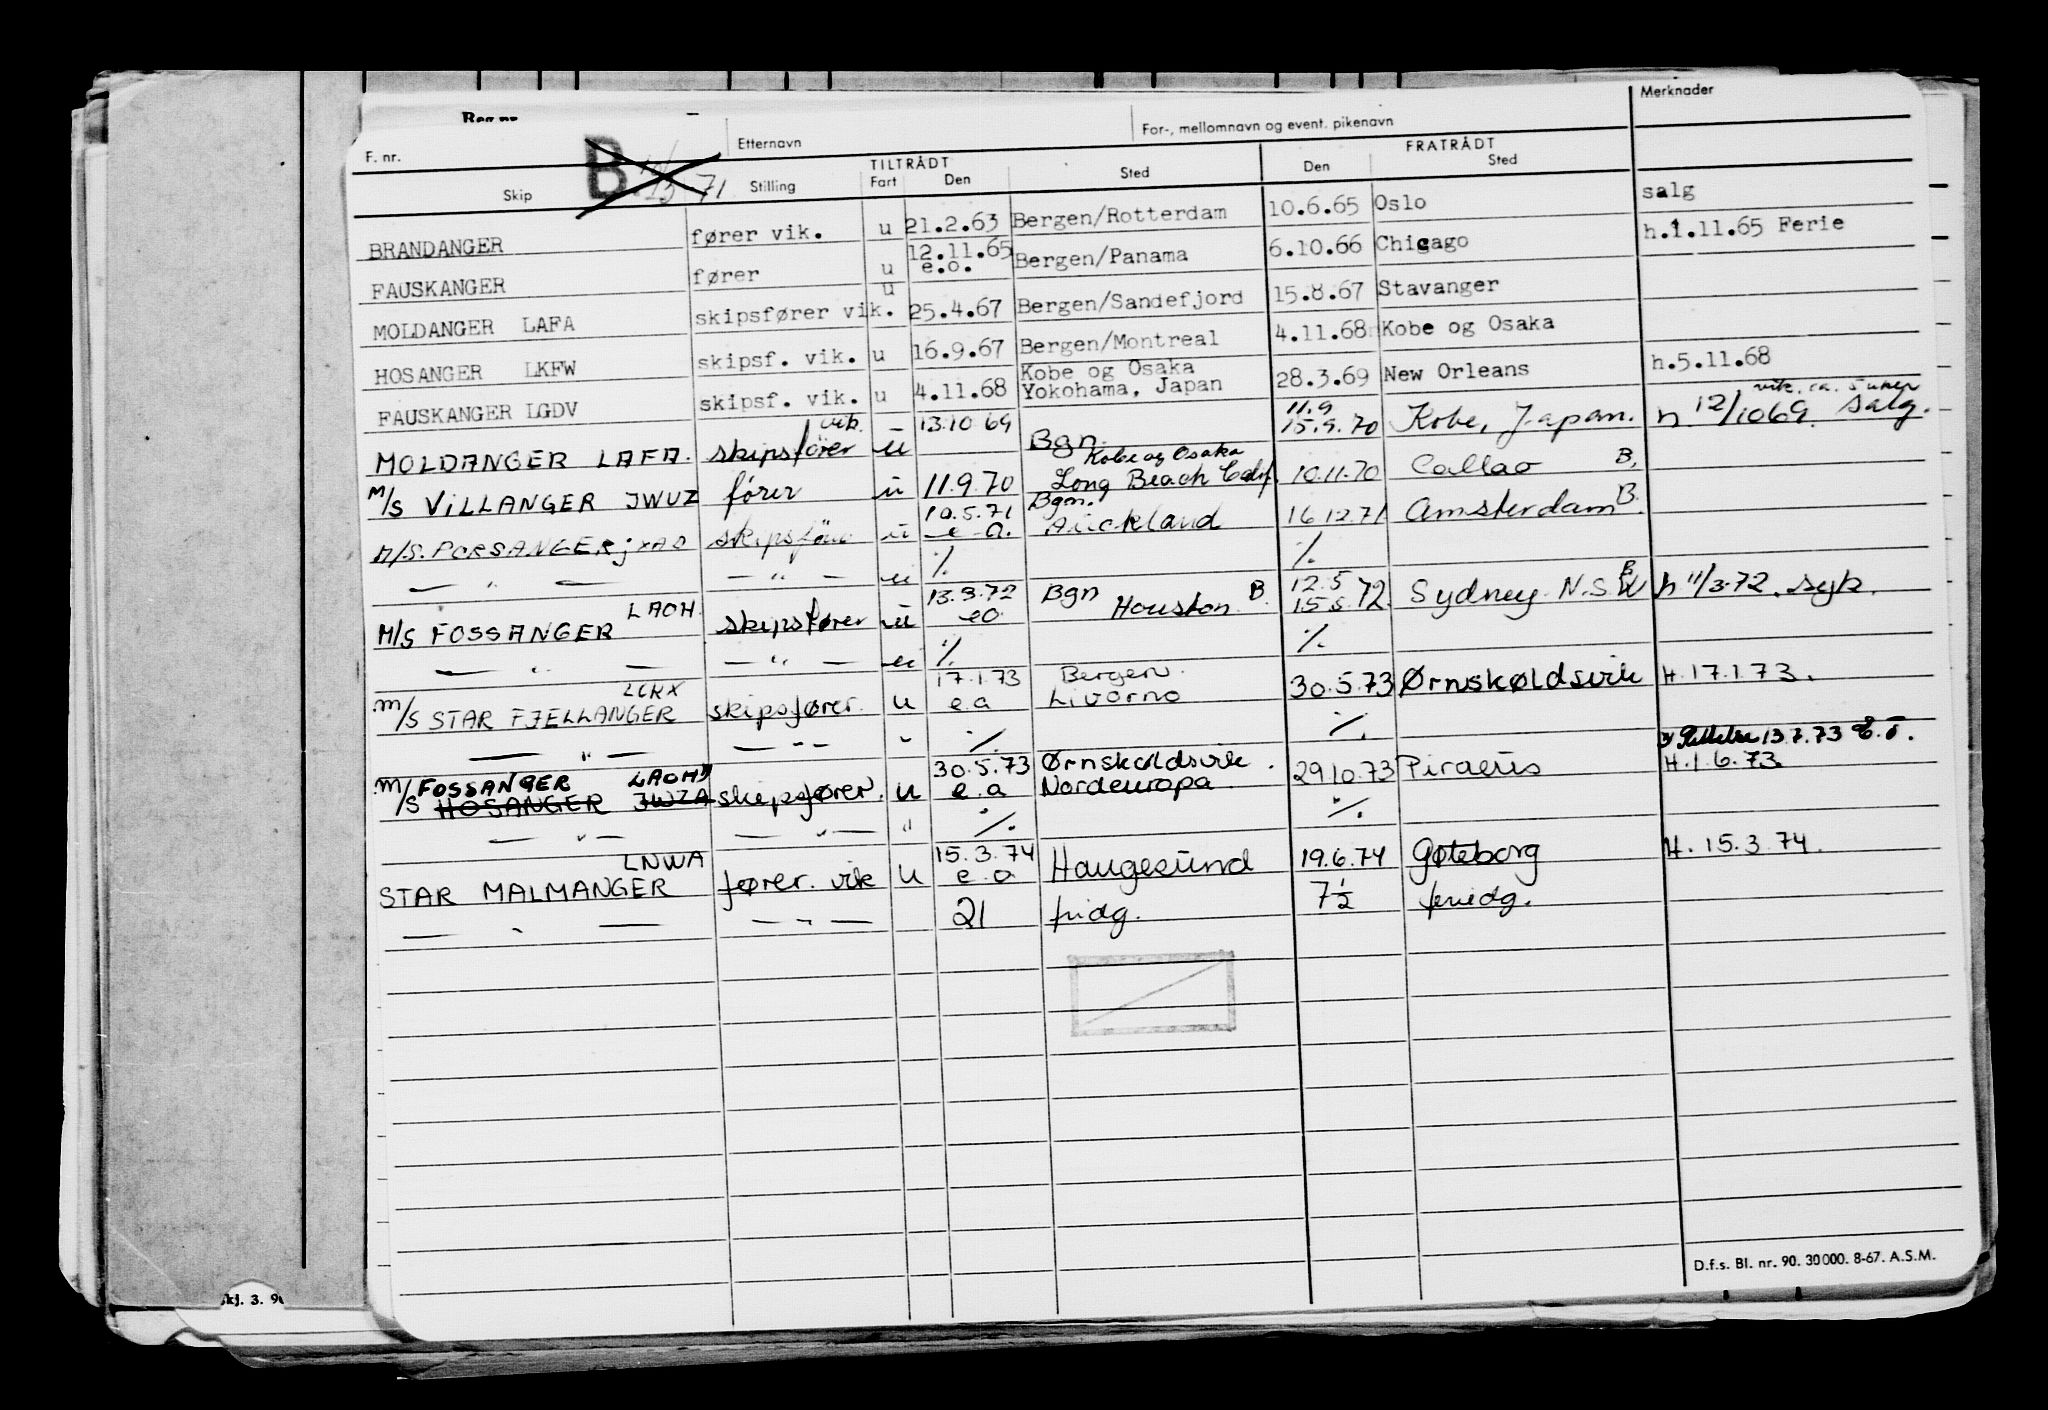 Merknader
F. nr. Etternavn For-, mellomnavn og event. pikenavn
B 71
TILTRÅDT FRATRÅDT
Skip Stilling Fart Den Sted Den Sted
BRANDANGER fører vik. u 21.2.63 Bergen/Rotterdam 10.6.65 Oslo salg
FAUSKANGER fører u 12.11.65 e.o. Bergen/Panama 6.10.66 Chicago h.1.11.65 Ferie
MOLDANGER LAFA skipsfører vik. u 25.4.67 Bergen/Sandefjord 15.8.67 Stavanger
HOSANGER LKFW skipsf. vik. u 16.9.67 Bergen/Montreal 4.11.68 Kobe og Osaka
FAUSKANGER LGDV skipsf. vik. u 4.11.68 Kobe og Osaka Yokohama, Japan 28.3.69 New Orleans h.5.11.68
MOLDANGER LAFA. skipsfører vik. u 13.10 69 Bgn. 11.9 15.9.70 Kobe, Japan. h 12/10 69. Salg. vik. ca. 5 uker
M/S VILLANGER JWUZ fører u 11.9.70 Kobe og Osaka Long Beach Calif. 10.11.70 Callao B.
M/S. PORSANGER jxAO skipsfører u 10.5.71 e.o. Bgn. Auckland 16 12.71 Amsterdam B.
— " — — " — u %. %.
M/S FOSSANGER LAOH skipsfører u 13.3.72 eo Bgn Houston B. 12.5 15.5.72 Sydney N.S.W B h 11/3-72. syk.
— " — — " — u %. %.
M/S STAR FJELLANGER LCRX skipsfører. u 17.1.73 e.a Bergen. Livorno 30.5.73 Ørnskøldsvik H.17.1.73.
— " — — " — " %. %.
13.7.73
M/S FOSSANGER LAOH HOSANGER JWZA skipsfører. u 30.5.73 e.a Ørnskoldsvik. Nordeuropa 29.10.73 Piraeus H.1.6.73
— " — — " — " %. %.
STAR MALMANGER LNWA fører. vik u 15.3.74 e.a Haugesund 19.6.74 Gøteborg H. 15.3.74.
— " — — " — 21 fridg. 7½ feriedg.
D.f.s. Bl. nr. 90. 30000. 8-67. A.S.M.
kj. 3. 90